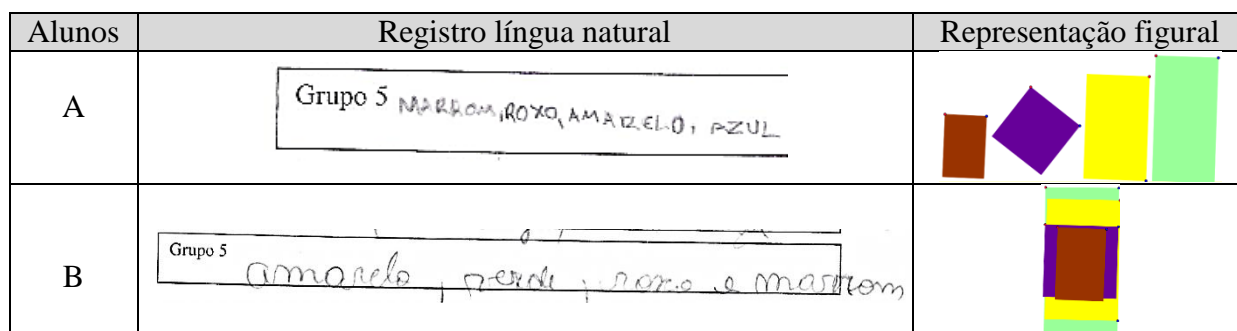 Alunos Registro língua natural Representação figural
A Grupo 5 MARROM, ROXO, AMARELO, AZUL
B Grupo 5 amarelo, verde, roxo e marrom